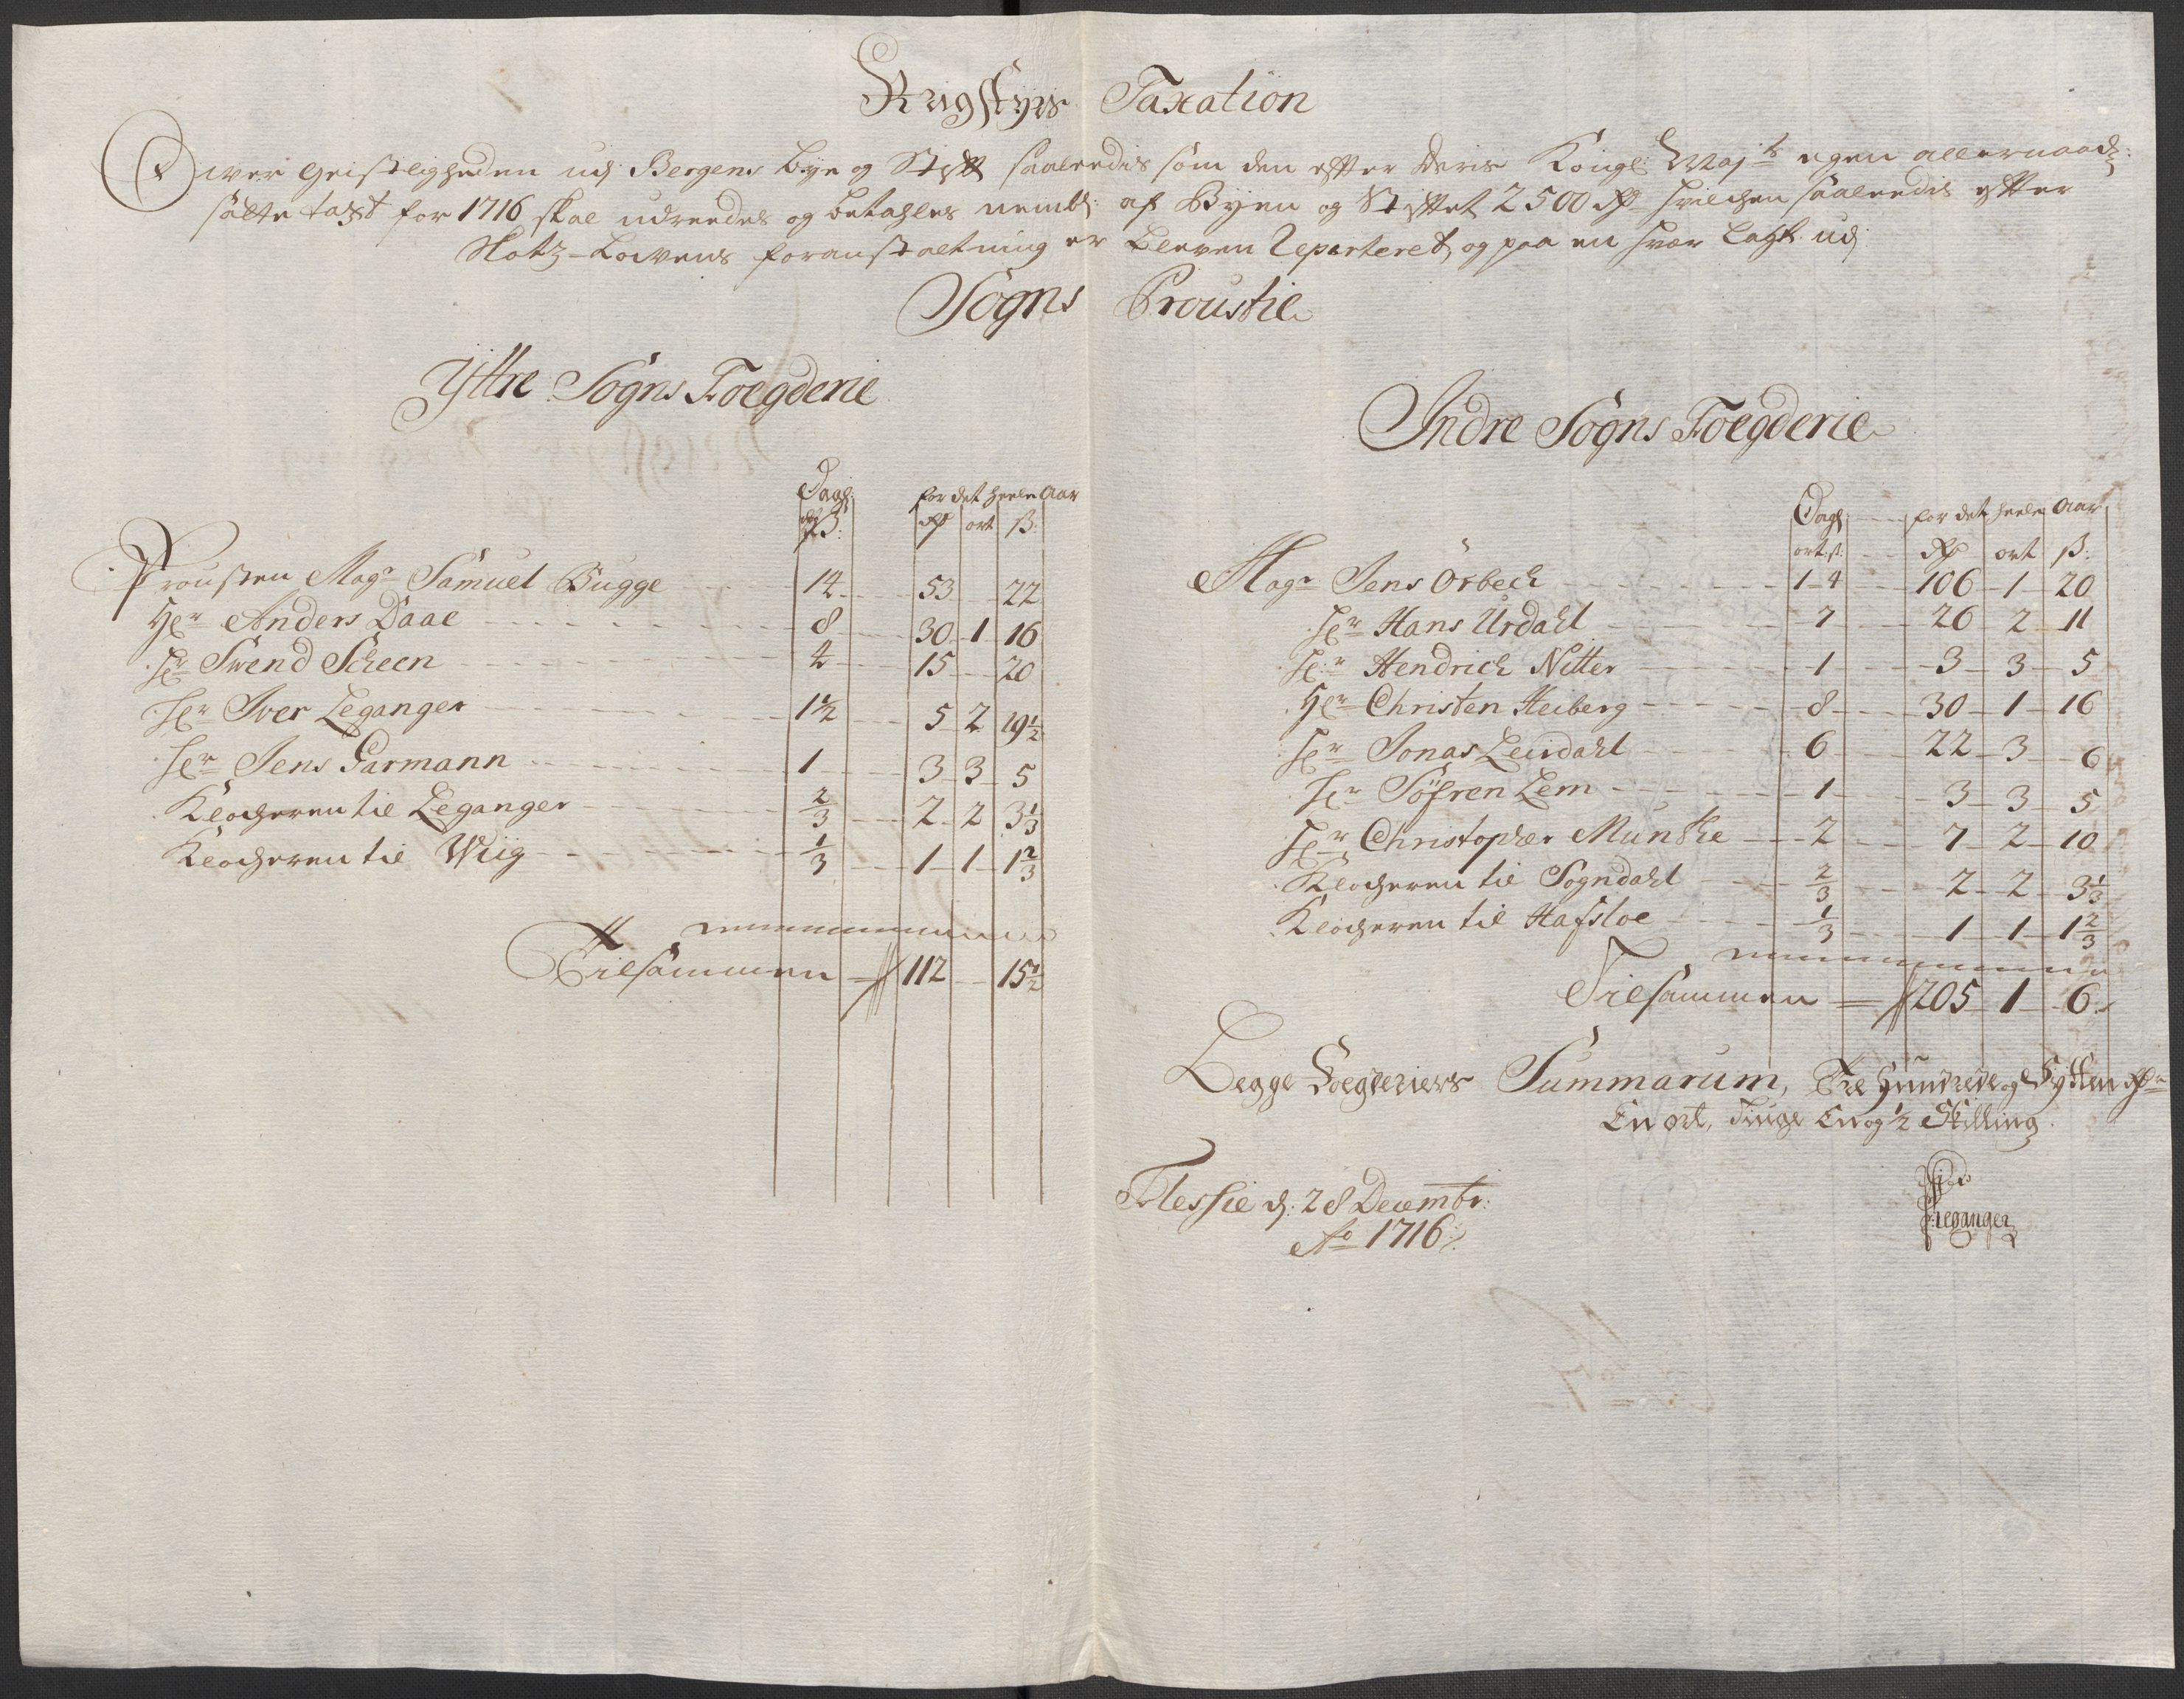 Krigstyrs Taxation
Over Geistligheden udj Bergens Bye og Stifft saaleedis som den effter Deris Kongl: Mayts egen allernaadj:
satte taxt for 1716 skal udreedes og betahles nembl: af Byen og Stifftet 2500 Rdr hvilchen saaleedis effter
Slotz-Lovens foranstaltning er bleven Reparteret, og paa en hver lagt udj
Sogns Proustie
Yttre Sogns Foegderie
Dagl: for det heele Aar
ß: Rdr ort ß:
Prousten Magr Samuel Bugge 14 53 22
Hr Anders Daae 8 30 1 16
Hr Swend Scheen 4 15 20
Hr Iver Leganger 1½ 5 2 19½
Hr Jens Garmann 1 3 3 5
Klocheren til Leganger ⅔ 2 2 3⅓
Klocheren til Wiig ⅓ 1 1 1⅔
Tilsammen 112 15½
Indre Sogns Foegderie
Dagl for det heele Aar
ort: ß: Rdr ort ß:
Magr Jens Ørbech 1-4 106 1 20
Hr Hans Urdahl 7 26 2 11
Hr Hendrich Nitter 1 3 3 5
Hr Christen Heiberg 8 30 1 16
Hr Jonas Leirdahl 6 22 3 6
Hr Søfren Lem 1 3 3 5
Hr Christopher Munthe 2 7 2 10
Klocheren til Sogndahl ⅔ 2 2 3⅓
Klocheren til Hafsloe ⅓ 1 1 1⅔
Tilsammen 205 1 6
Begge Foegderiers Summarum, Tre Hundrede og Sytten Rdr
En ort, Tiuge En og ½ Skilling.
Flessie d: 28 Decembr:
Ao 1716
Leganger